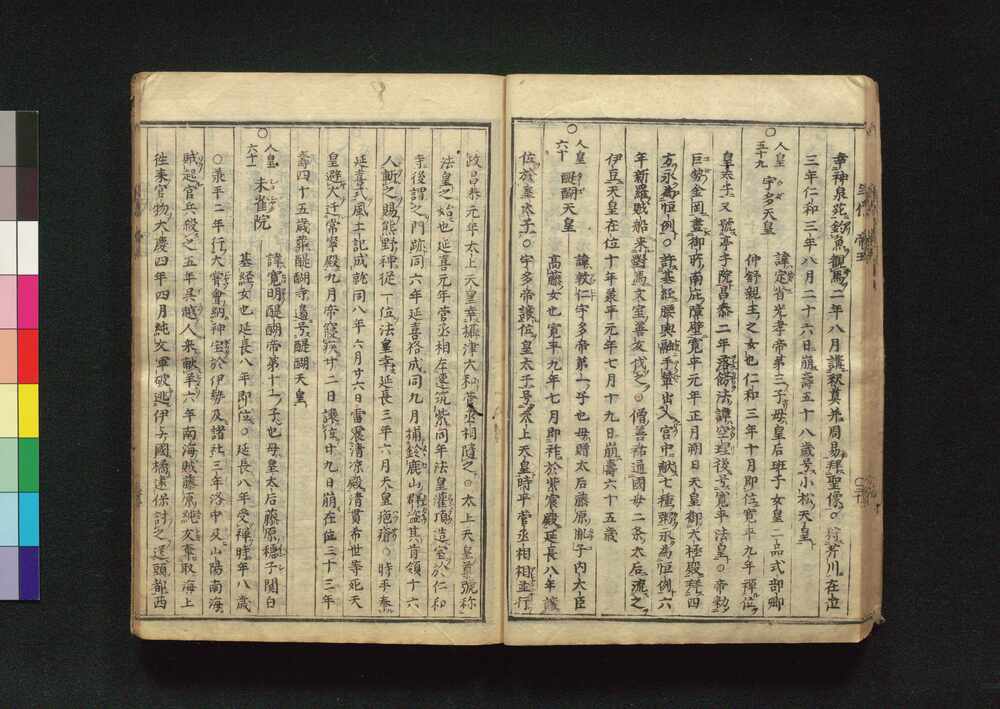 幸神泉苑釣魚観馬二年八月講釈奠并周易拝聖像狩芹川在位
三年仁和三年八月二十六日崩寿五十八歳号小松天皇
〇人皇五十九 宇多天皇 諱定省光孝帝第三子母皇后班子女皇二品式部卿
仲野親王之女也仁和三年十月即位寛平九年禅位
皇太子又号亭子院昌泰二年落飾法諱空理後号寛平法皇〇帝勅
巨勢金岡画御所南庇障壁寛平元年正月朔日天皇御大極殿拝四
方永為恒例〇許基経腰輿融手輦出入宮中献七種粥永為恒例六
年新羅賊船来対馬文室善友伐之〇僧善祐通国母二条太后流之
伊豆天皇在位十年承平元年七月十九日崩寿六十五歳
〇人皇六十 醍醐天皇 諱敦仁宇多帝第一子也母贈太后藤原胤子内大臣
高藤女也寛平九年七月即祚於紫宸殿延長八年譲
位於皇太子〇宇多帝譲位皇太子号太上天皇時平菅丞相相並行
政昌泰元年太上天皇幸摂津大和菅丞相随之〇太上天皇尊号称
法皇之始也延喜元年菅丞相左遷筑紫同年法皇灌頂造室於仁和
寺後謂之門跡同六年延喜格成同九月捕鈴鹿山群盗其首領十六
人斬之賜熊野神従一位法皇幸延長三年六月天皇疱瘡〇時平奉
延喜式風土記成就同八年六月廿六日雷震清涼殿清貫希世等死天
皇避火迁常寧殿九月帝寝疾廿二日譲位廿九日崩在位三十三年
寿四十五歳葬醍醐寺遺号醍醐天皇
〇人皇六十一 朱雀院 諱寛明醍醐帝第十一子也母皇太后藤原穏子関白
基経女也延長八年即位〇延長八年受禅時年八歳
〇承平二年行大嘗会納神宝於伊勢及諸社三年洛中及山陽南海
賊起官兵殺之五年呉越人来献羊六年南海賊藤原純友奪取海上
往来官物天慶四年四月純友軍破逃伊与国橘遠保討之送頭都西